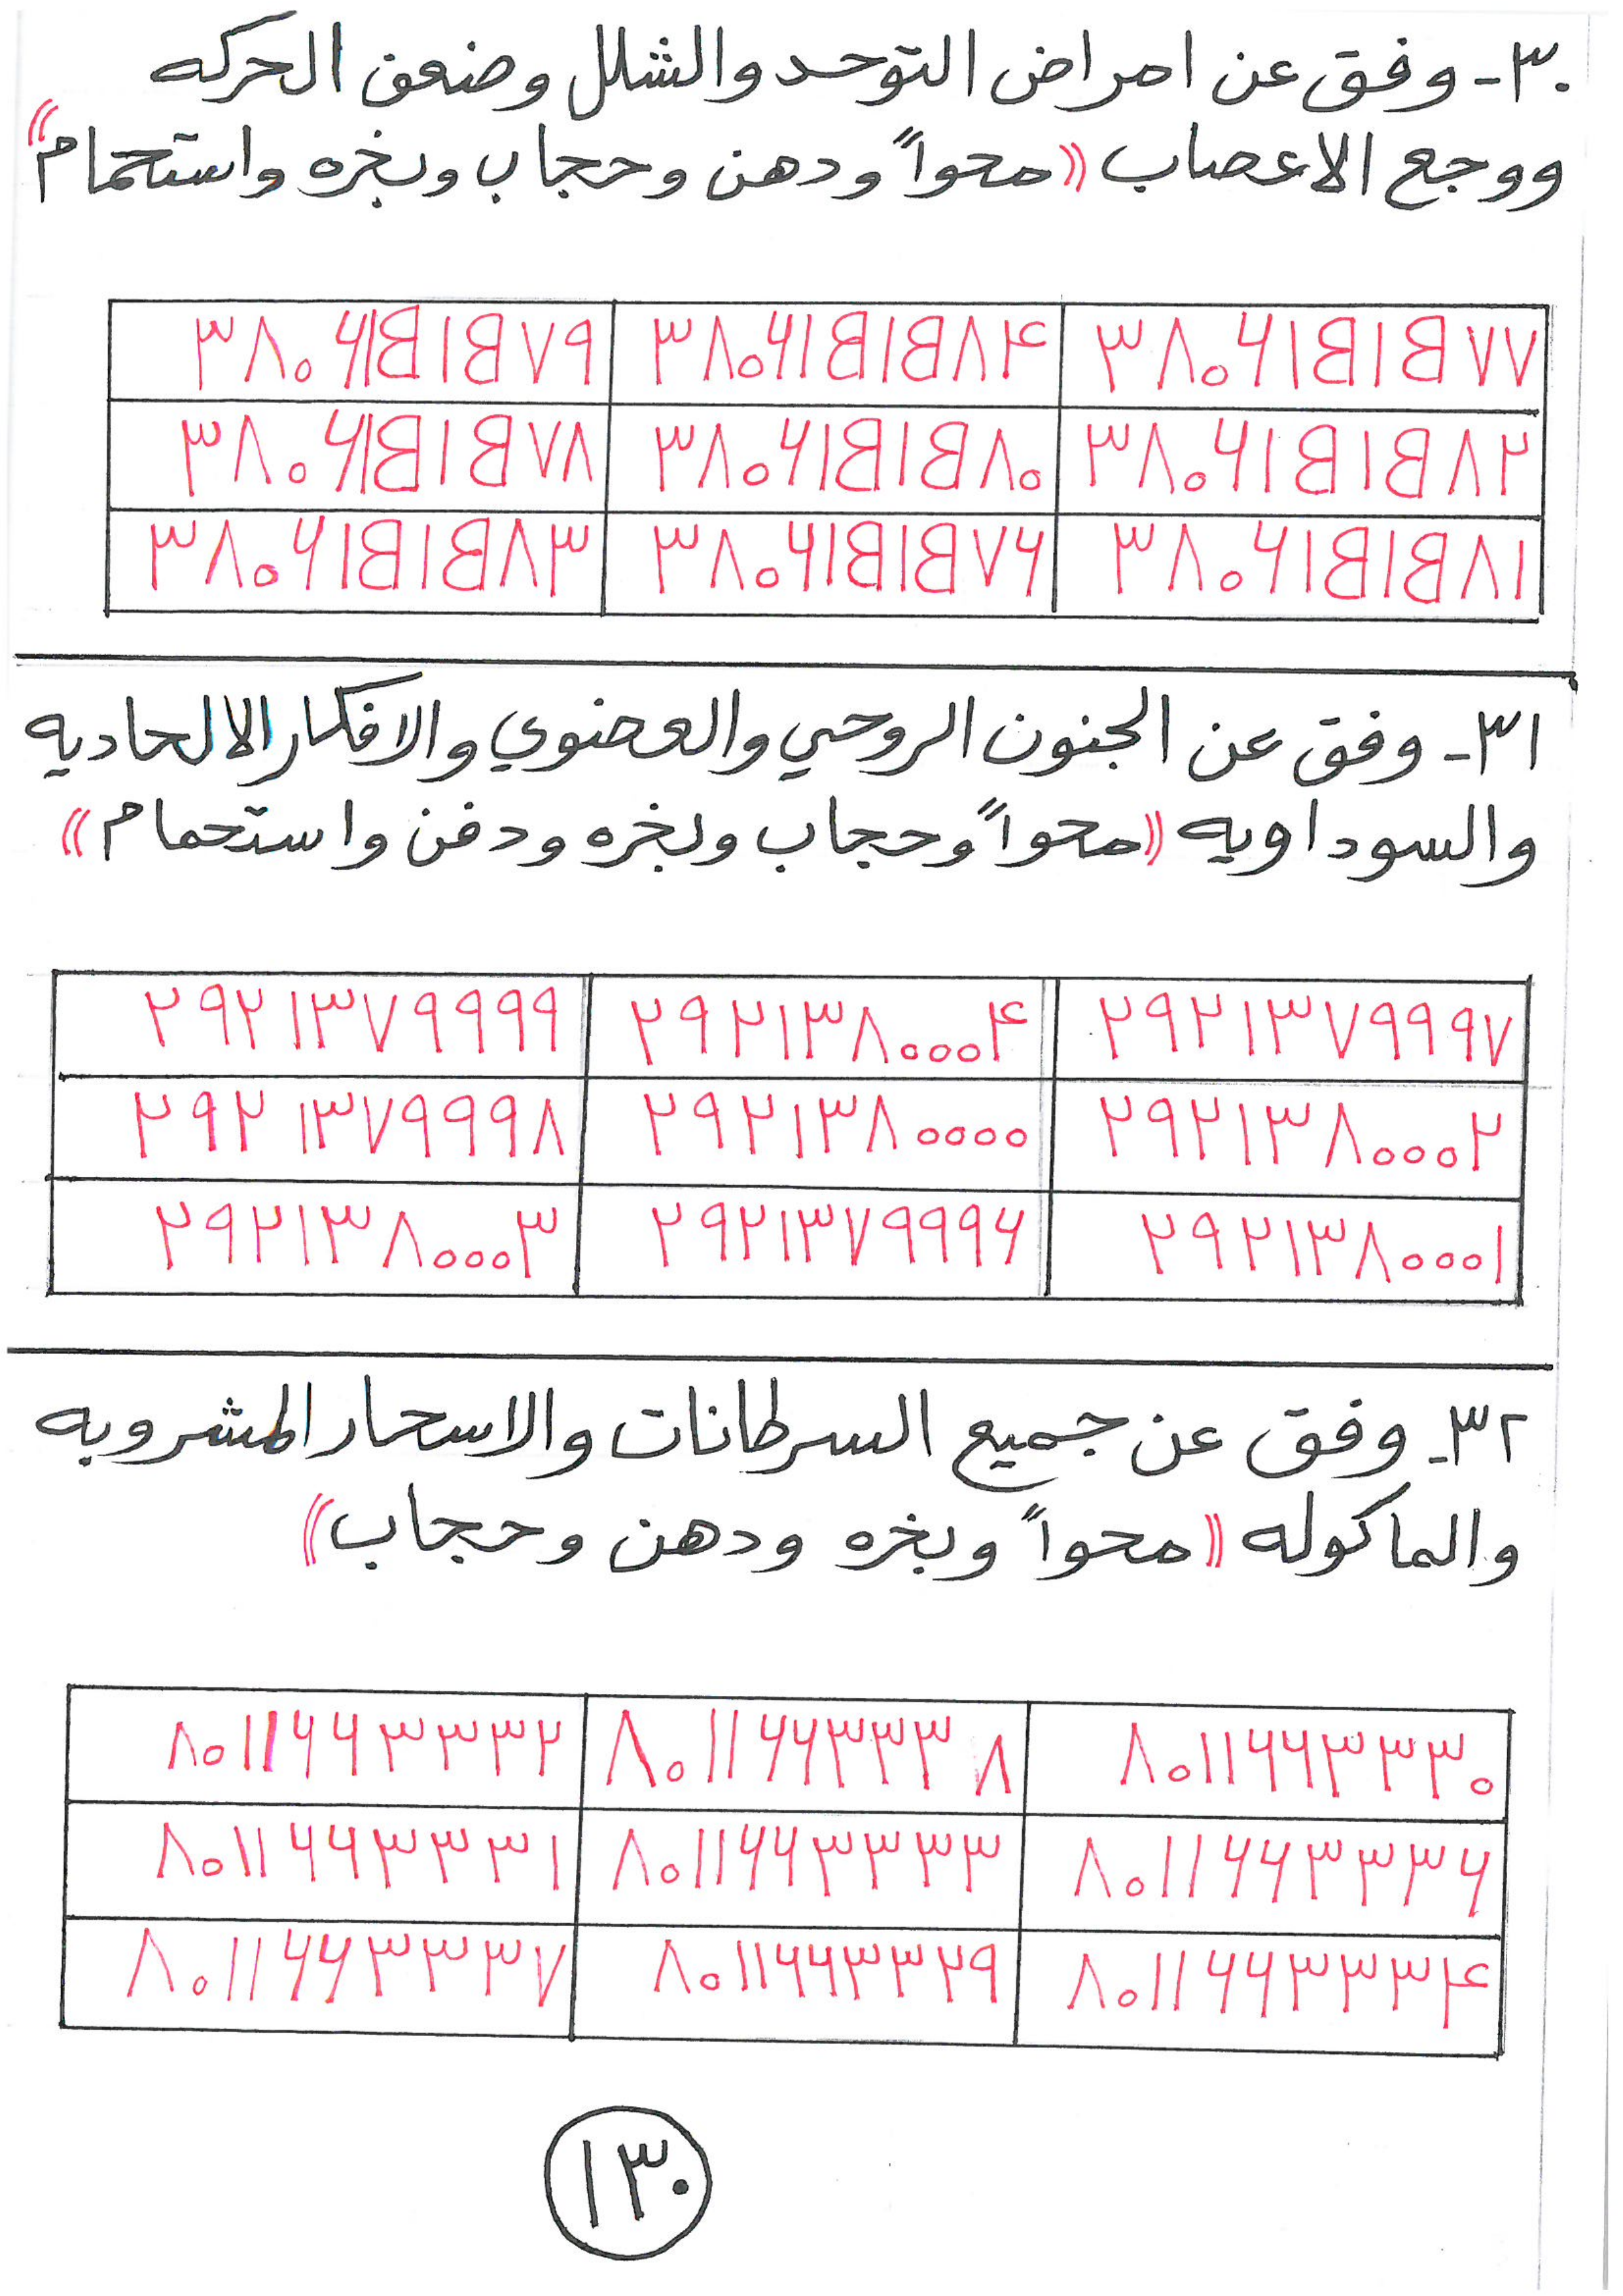 ٣٠- وفق عن امراض التوحد والشلل وضعف الحركه
ووجع الاعصاب ((محواً ودهن وحجاب وبخره واستحمام))
٣٨٠٦١٥١٥٧٧ ٣٨٠٦١٥١٥٨۴ ٣٨٠٦١٥١٥٧٩
٣٨٠٦١٥١٥٨٢ ٣٨٠٦١٥١٥٨٠ ٣٨٠٦١٥١٥٧٨
٣٨٠٦١٥١٥٨١ ٣٨٠٦١٥١٥٧٦ ٣٨٠٦١٥١٥٨٣
٣١- وفق عن الجنون الروحي والعضوي والافكار الالحاديه
والسوداويه ((محواً وحجاب وبخره ودفن واستحمام))
٢٩٢١٣٧٩٩٩٧ ٢٩٢١٣٨٠٠٠۴ ٢٩٢١٣٧٩٩٩٩
٢٩٢١٣٨٠٠٠٢ ٢٩٢١٣٨٠٠٠٠ ٢٩٢١٣٧٩٩٩٨
٢٩٢١٣٨٠٠٠١ ٢٩٢١٣٧٩٩٩٦ ٢٩٢١٣٨٠٠٠٣
٣٢- وفق عن جميع السرطانات والاسحار المشروبه
والماكوله ((محواً وبخره ودهن وحجاب))
٨٠١١٦٦٣٣٣٠ ٨٠١١٦٦٣٣٣٨ ٨٠١١٦٦٣٣٣٢
٨٠١١٦٦٣٣٣٦ ٨٠١١٦٦٣٣٣٣ ٨٠١١٦٦٣٣٣١
٨٠١١٦٦٣٣٣۴ ٨٠١١٦٦٣٣٢٩ ٨٠١١٦٦٣٣٣٧
١٣٠